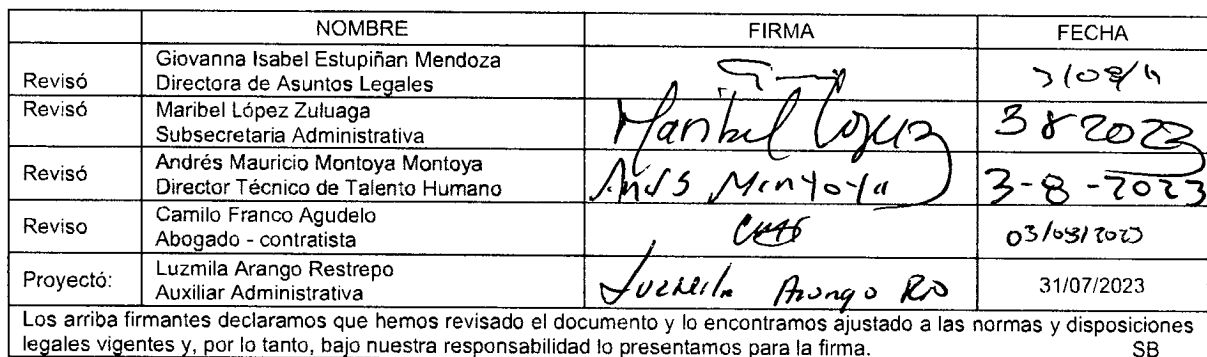 NOMBRE FIRMA FECHA
Giovanna Isabel Estupiñan Mendoza
Revisó Directora de Asuntos Legales
Revisó Maribel López Zuluaga Maribel López 3 8 2023
Subsecretaria Administrativa
Andrés Mauricio Montoya Montoya
Revisó Director Técnico de Talento Humano 3-8-2023
Camilo Franco Agudelo
Reviso Abogado - contratista 03/08/2023
Luzmila Arango Restrepo
Proyectó: Auxiliar Administrativa Luzmila Arango 31/07/2023
Los arriba firmantes declaramos que hemos revisado el documento y lo encontramos ajustado a las normas y disposiciones
legales vigentes y, por lo tanto, bajo nuestra responsabilidad lo presentamos para la firma. SB